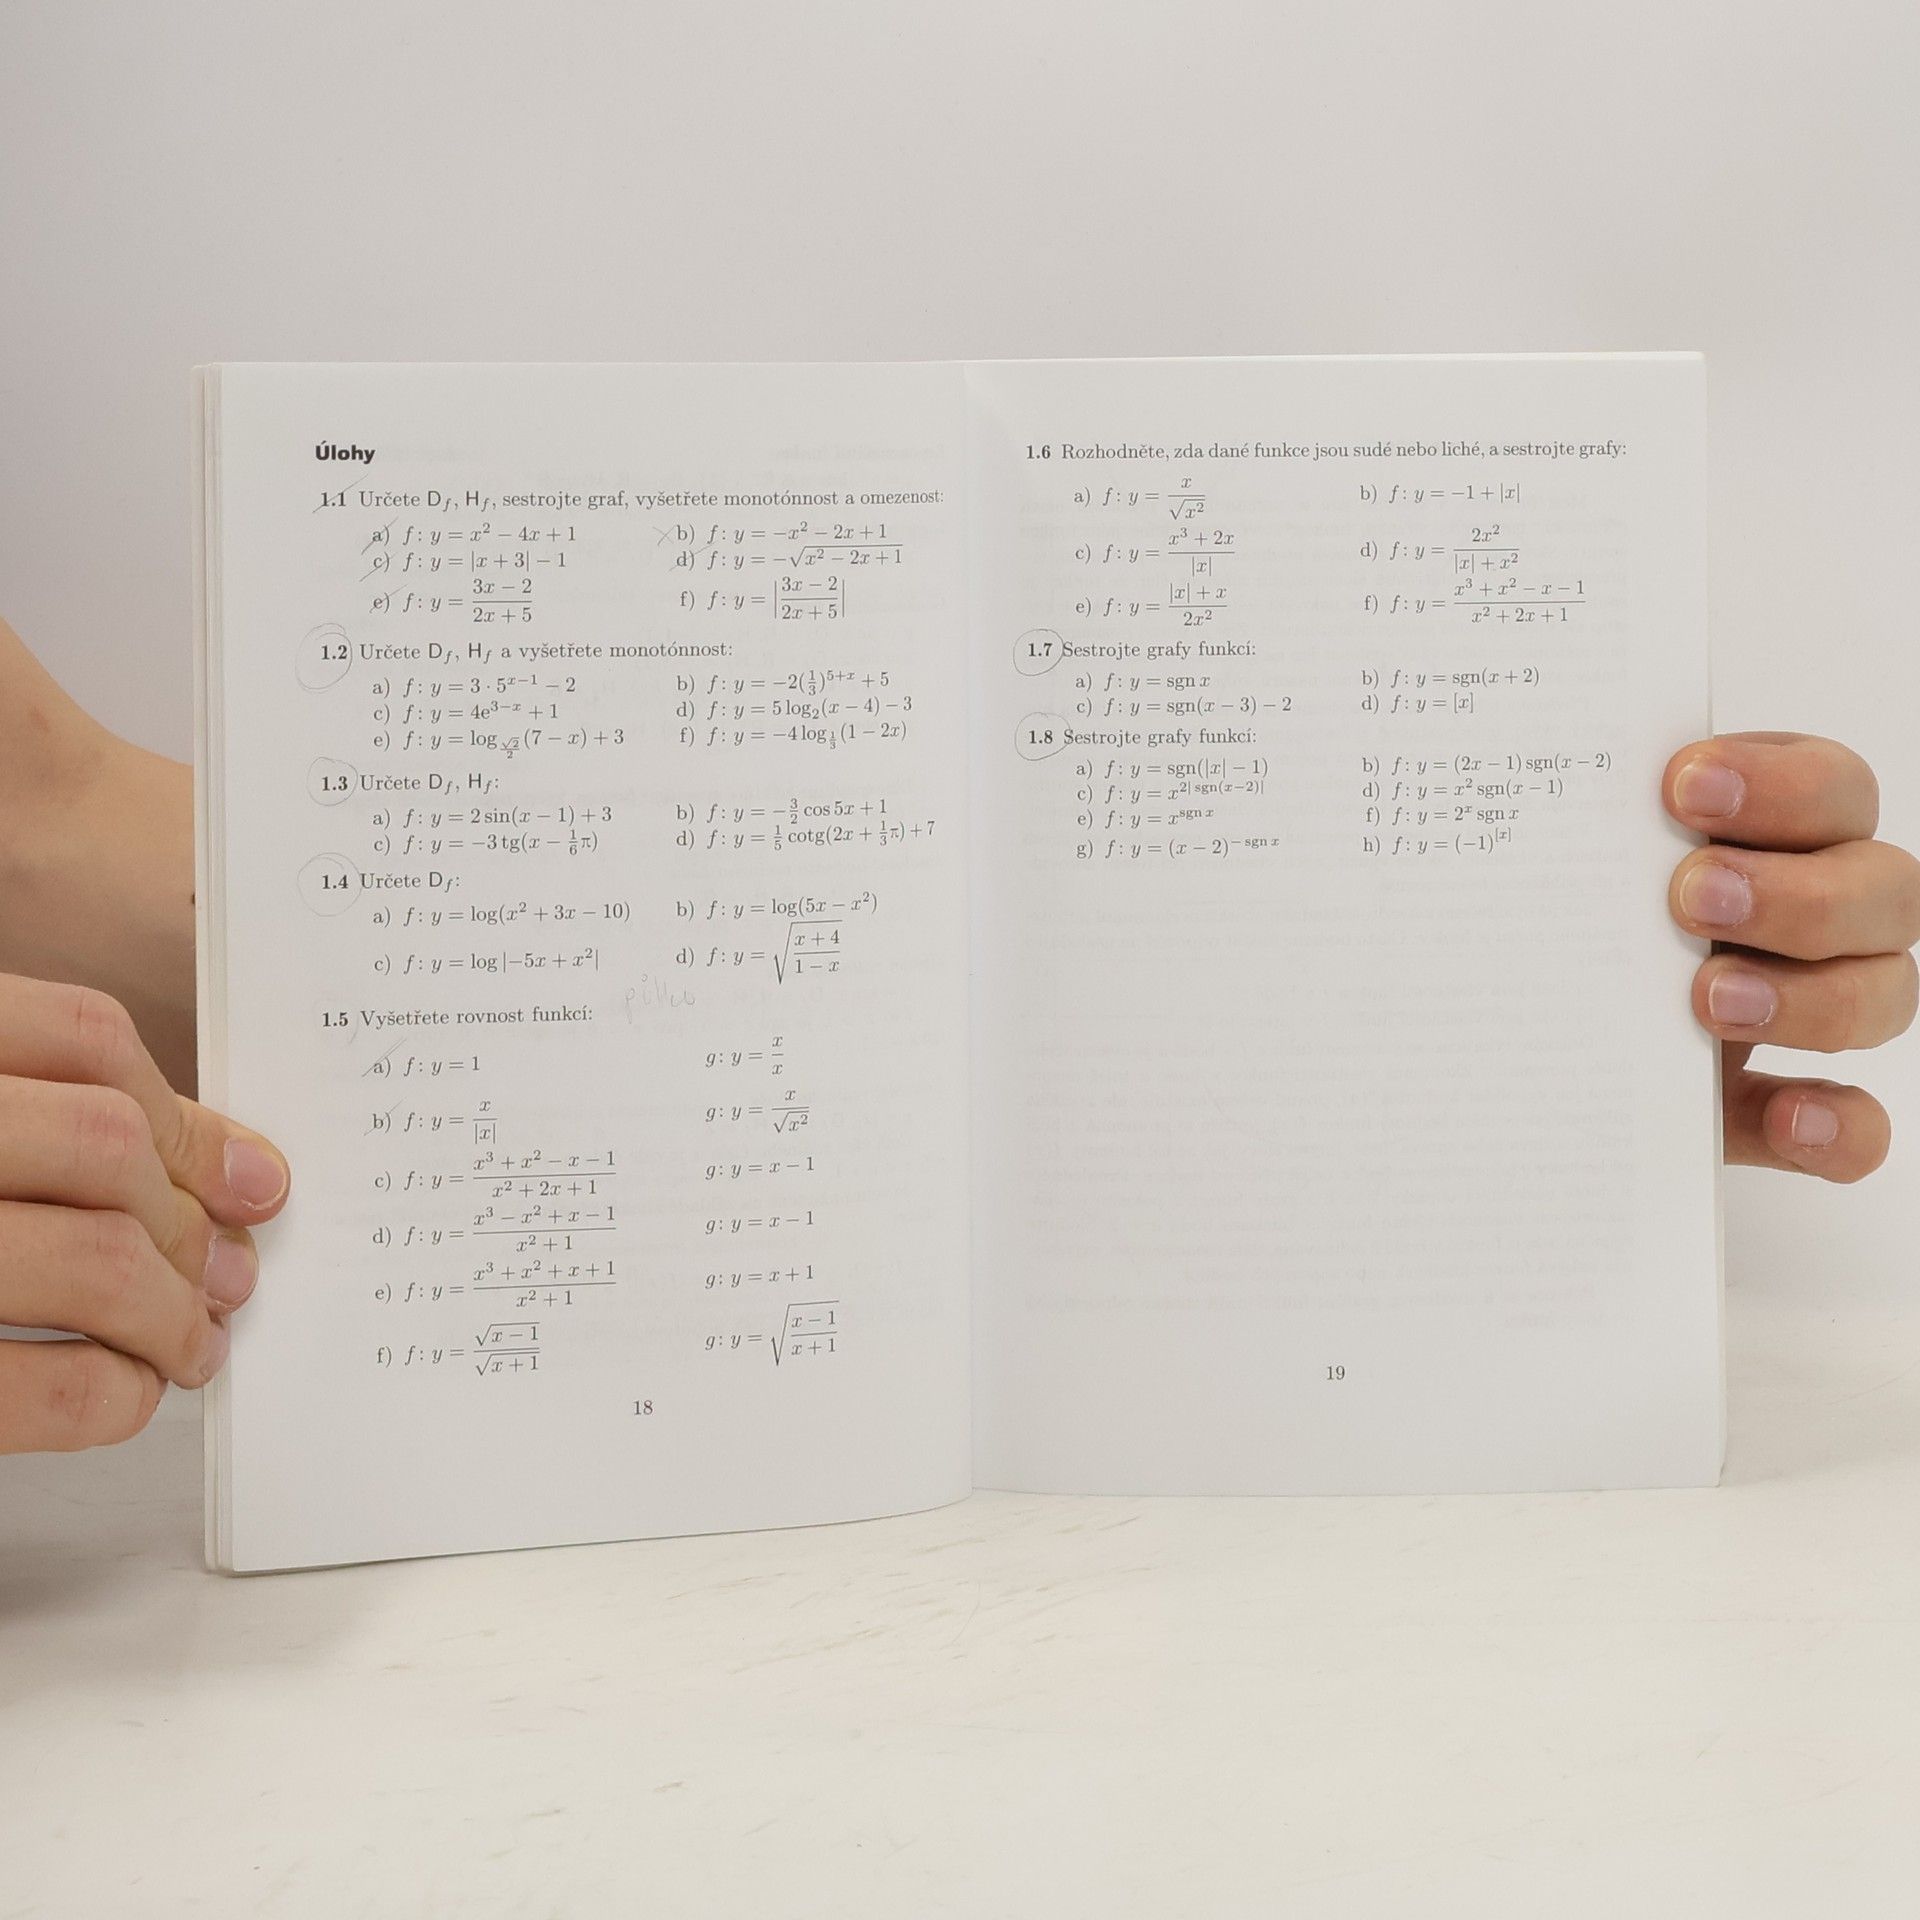 Úlohy
1.1 Určete D_f, H_f, sestrojte graf, vyšetřete monotónnost a omezenost:
a) f: y = x² − 4x + 1 b) f: y = −x² − 2x + 1
c) f: y = |x + 3| − 1 d) f: y = −√(x² − 2x + 1)
e) f: y = (3x − 2)/(2x + 5) f) f: y = |(3x − 2)/(2x + 5)|
1.2 Určete D_f, H_f a vyšetřete monotónnost:
a) f: y = 3 · 5^(x−1) − 2 b) f: y = −2(1/3)^(5+x) + 5
c) f: y = 4e^(3−x) + 1 d) f: y = 5 log₂(x − 4) − 3
e) f: y = log_(√2/2)(7 − x) + 3 f) f: y = −4 log_(1/3)(1 − 2x)
1.3 Určete D_f, H_f:
a) f: y = 2 sin(x − 1) + 3 b) f: y = −3/2 cos 5x + 1
c) f: y = −3 tg(x − 1/6 π) d) f: y = 1/5 cotg(2x + 1/3 π) + 7
1.4 Určete D_f:
a) f: y = log(x² + 3x − 10) b) f: y = log(5x − x²)
c) f: y = log |−5x + x²| d) f: y = √((x + 4)/(1 − x))
1.5 Vyšetřete rovnost funkcí:
a) f: y = 1 g: y = x/x
b) f: y = x/|x| g: y = x/√(x²)
c) f: y = (x³ + x² − x − 1)/(x² + 2x + 1) g: y = x − 1
d) f: y = (x³ − x² + x − 1)/(x² + 1) g: y = x − 1
e) f: y = (x³ + x² + x + 1)/(x² + 1) g: y = x + 1
f) f: y = √(x − 1)/√(x + 1) g: y = √((x − 1)/(x + 1))
18
1.6 Rozhodněte, zda dané funkce jsou sudé nebo liché, a sestrojte grafy:
a) f: y = x/√(x²) b) f: y = −1 + |x|
c) f: y = (x³ + 2x)/|x| d) f: y = 2x²/(|x| + x²)
e) f: y = (|x| + x)/(2x²) f) f: y = (x³ + x² − x − 1)/(x² + 2x + 1)
1.7 Sestrojte grafy funkcí:
a) f: y = sgn x b) f: y = sgn(x + 2)
c) f: y = sgn(x − 3) − 2 d) f: y = [x]
1.8 Sestrojte grafy funkcí:
a) f: y = sgn(|x| − 1) b) f: y = (2x − 1) sgn(x − 2)
c) f: y = x^(2| sgn(x−2)|) d) f: y = x² sgn(x − 1)
e) f: y = x^(sgn x) f) f: y = 2^x sgn x
g) f: y = (x − 2)^(− sgn x) h) f: y = (−1)^([x])
19